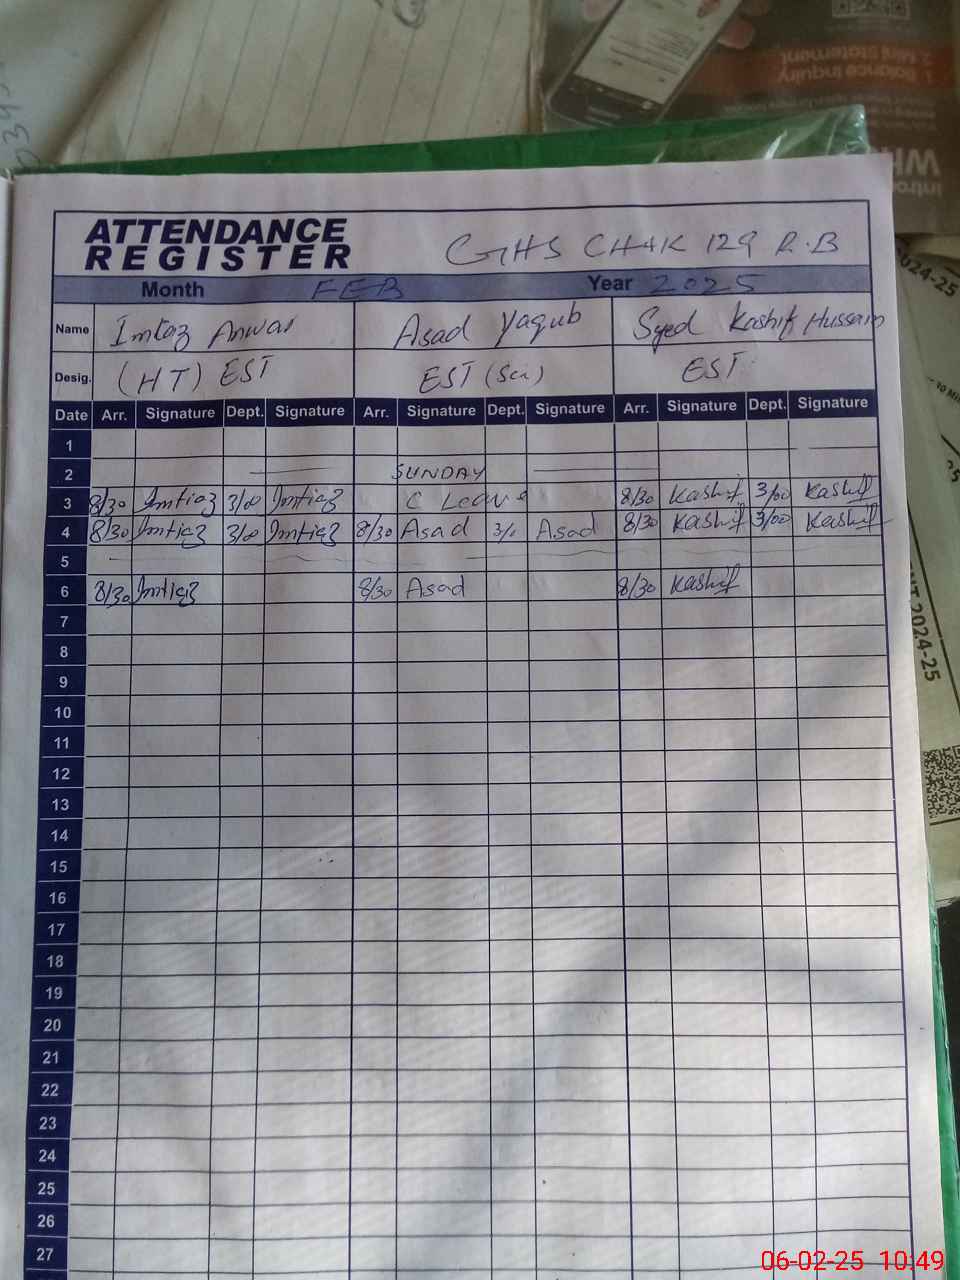 0345
1. Balance Inquiry
2. Mini Statement
Intro
WH
2024-25
NT 2024-25
ATTENDANCE
REGISTER
GHS CHAK 129 R.B
Month FEB Year 2025
Name Imtaz Anwar Asad Yaqub Syed Kashif Hussain
Desig. (HT) EST EST (Sci) EST
Date Arr. Signature Dept. Signature Arr. Signature Dept. Signature Arr. Signature Dept. Signature
1
2 SUNDAY
3 8/30 Imtiaz 3/0 Imtiaz C Leave 8/30 Kashif 3/00 Kashif
4 8/30 Imtiaz 3/0 Imtiaz 8/30 Asad 3/0 Asad 8/30 Kashif 3/00 Kashif
5
6 8/30 Imtiaz 8/30 Asad 8/30 Kashif
7
8
9
10
11
12
13
14
15
16
17
18
19
20
21
22
23
24
25
26
27
06-02-25 10:49